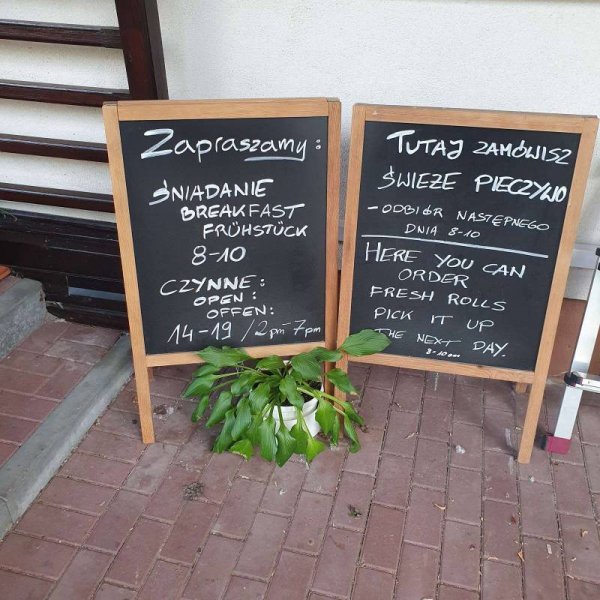 Zapraszamy:
ŚNIADANIE
BREAKFAST
FRÜHSTÜCK
8-10
CZYNNE:
OPEN:
OFFEN:
14-19 / 2pm-7pm
TUTAJ ZAMÓWISZ
ŚWIEŻE PIECZYWO
- ODBIÓR NASTĘPNEGO
DNIA 8-10
HERE YOU CAN
ORDER
FRESH ROLLS
PICK IT UP
THE NEXT DAY.
8-10am